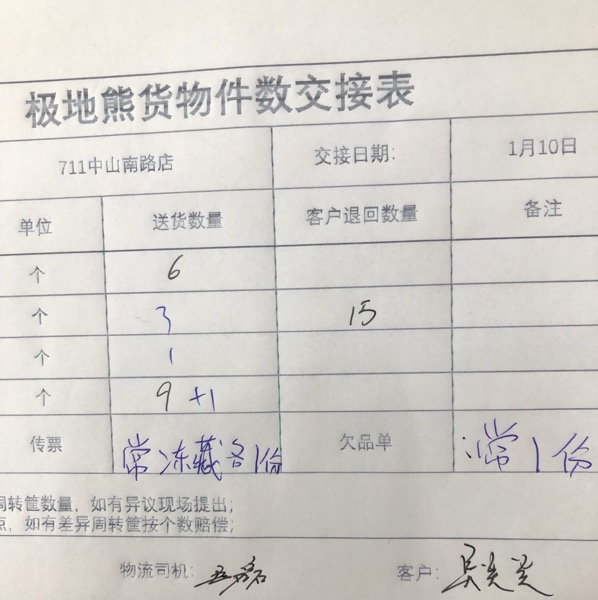 极地熊货物件数交接表
711中山南路店 交接日期: 1月10日
单位 送货数量 客户退回数量 备注
个 6
个 3 15
个 1
个 9 +1
传票 常冻藏各1份 欠品单 常1份
周转筐数量，如有异议现场提出;
点，如有差异周转筐按个数赔偿;
物流司机: 客户: